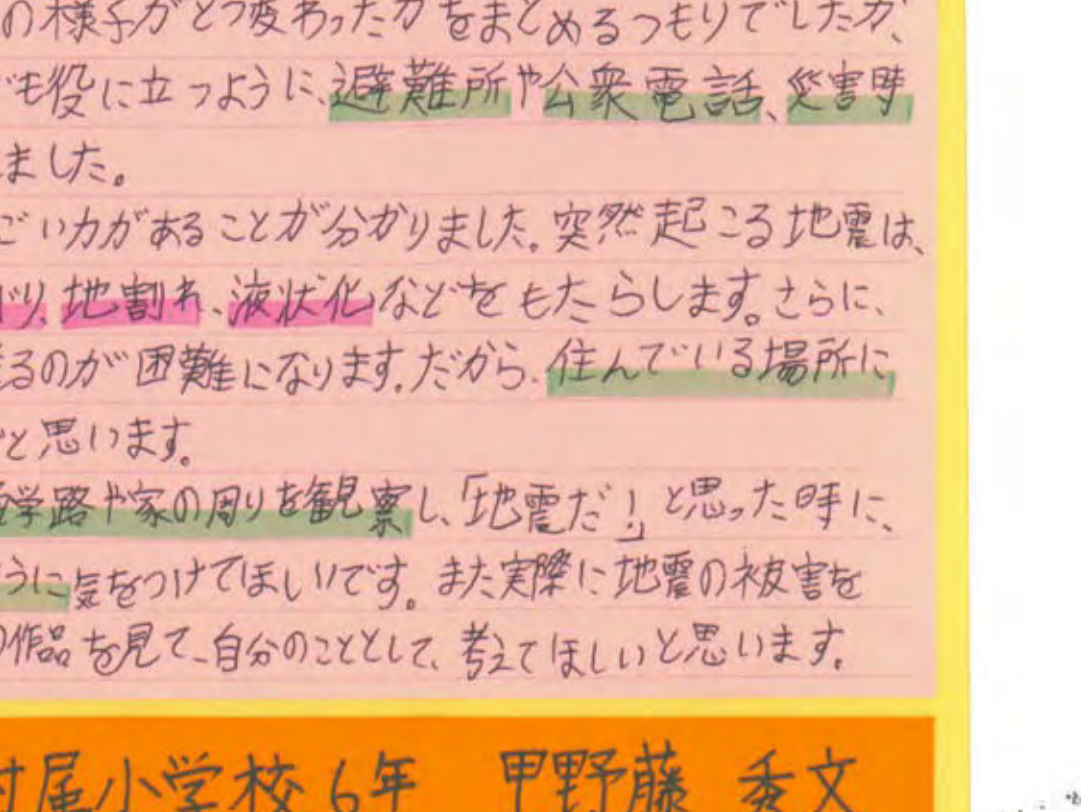 の様子がどう変わったかをまとめるつもりでしたが、
でも役に立つように、避難所や公衆電話、災害時
ました。
ごい力があることが分かりました。突然起こる地震は、
地割れ、液状化などをもたらします。さらに、
るのが困難になります。だから、住んでいる場所に
と思います。
学路や家の周りを観察し、「地震だ！」と思った時に、
うに気をつけてほしいです。また実際に地震の被害を
の作品を見て、自分のこととして、考えてほしいと思います。
付属小学校6年 甲野藤 秀文